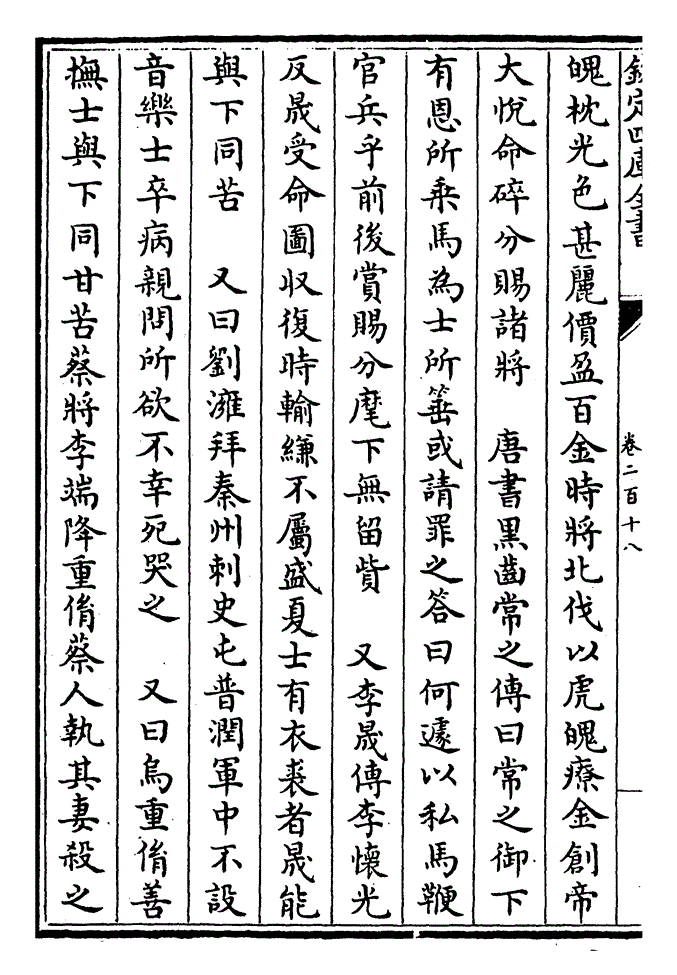 欽定四庫全書
卷二百十八
魄枕光色甚麗價盈百金時將北伐以虎魄療金創帝
大悅命碎分賜諸將　唐書黑齒常之傳曰常之御下
有恩所乘馬為士所箠或請罪之答曰何遽以私馬鞭
官兵乎前後賞賜分麾下無留貲　又李晟傳李懷光
反晟受命圖収復時輸縑不屬盛夏士有衣裘者晟能
與下同苦　又曰劉澭拜秦州刺史屯普潤軍中不設
音樂士卒病親問所欲不幸死哭之　又曰烏重偝善
撫士與下同甘苦蔡將李端降重偝蔡人執其妻殺之